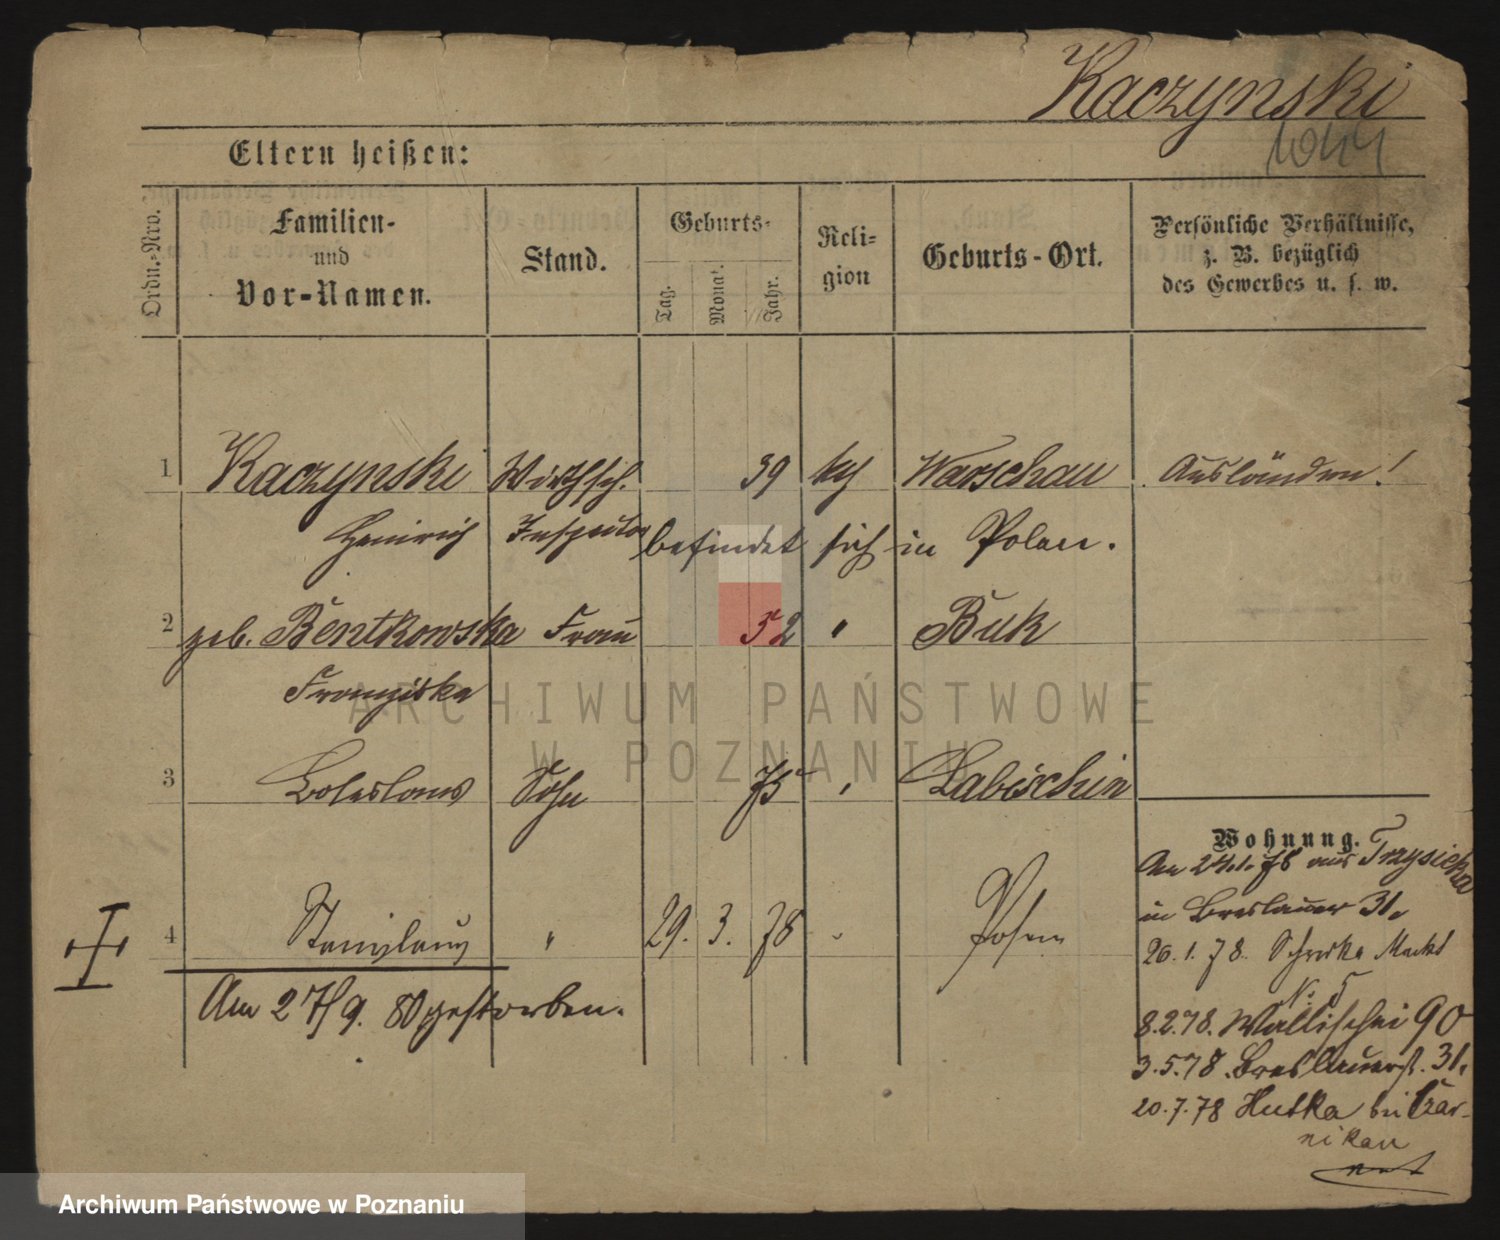 Kaczynski
1044
Eltern heißen:
Ordn.-Nro.
Familien-
und
Vor-Namen.
Stand.
Geburts-
Tag.
Monat.
Jahr.
Reli-
gion
Geburts-Ort.
Persönliche Verhältnisse,
z. B. bezüglich
des Gewerbes u. s. w.
1 Kaczynski Wirthsch. 39 kth Warschau Ausländer!
Heinrich Inspector befindet sich in Polen.
2 geb. Bentkowska Frau 52 " Buk
Franziska
3 Boleslaus Sohn 75 " Labischin
Wohnung.
Am 24.1.78 aus Trzysieka
in Breslauer 31.
4 Stanislaus " 29. 3. 78 " Posen
26.1.78. Markt
No 5
Am 27/9. 80 gestorben.
8.2.78. Wallischei 90
3.5.78. Breslauerst. 31.
20.7.78 Hutka bei Czar-
nikau
ARCHIWUM PAŃSTWOWE
W POZNANIU
Archiwum Państwowe w Poznaniu